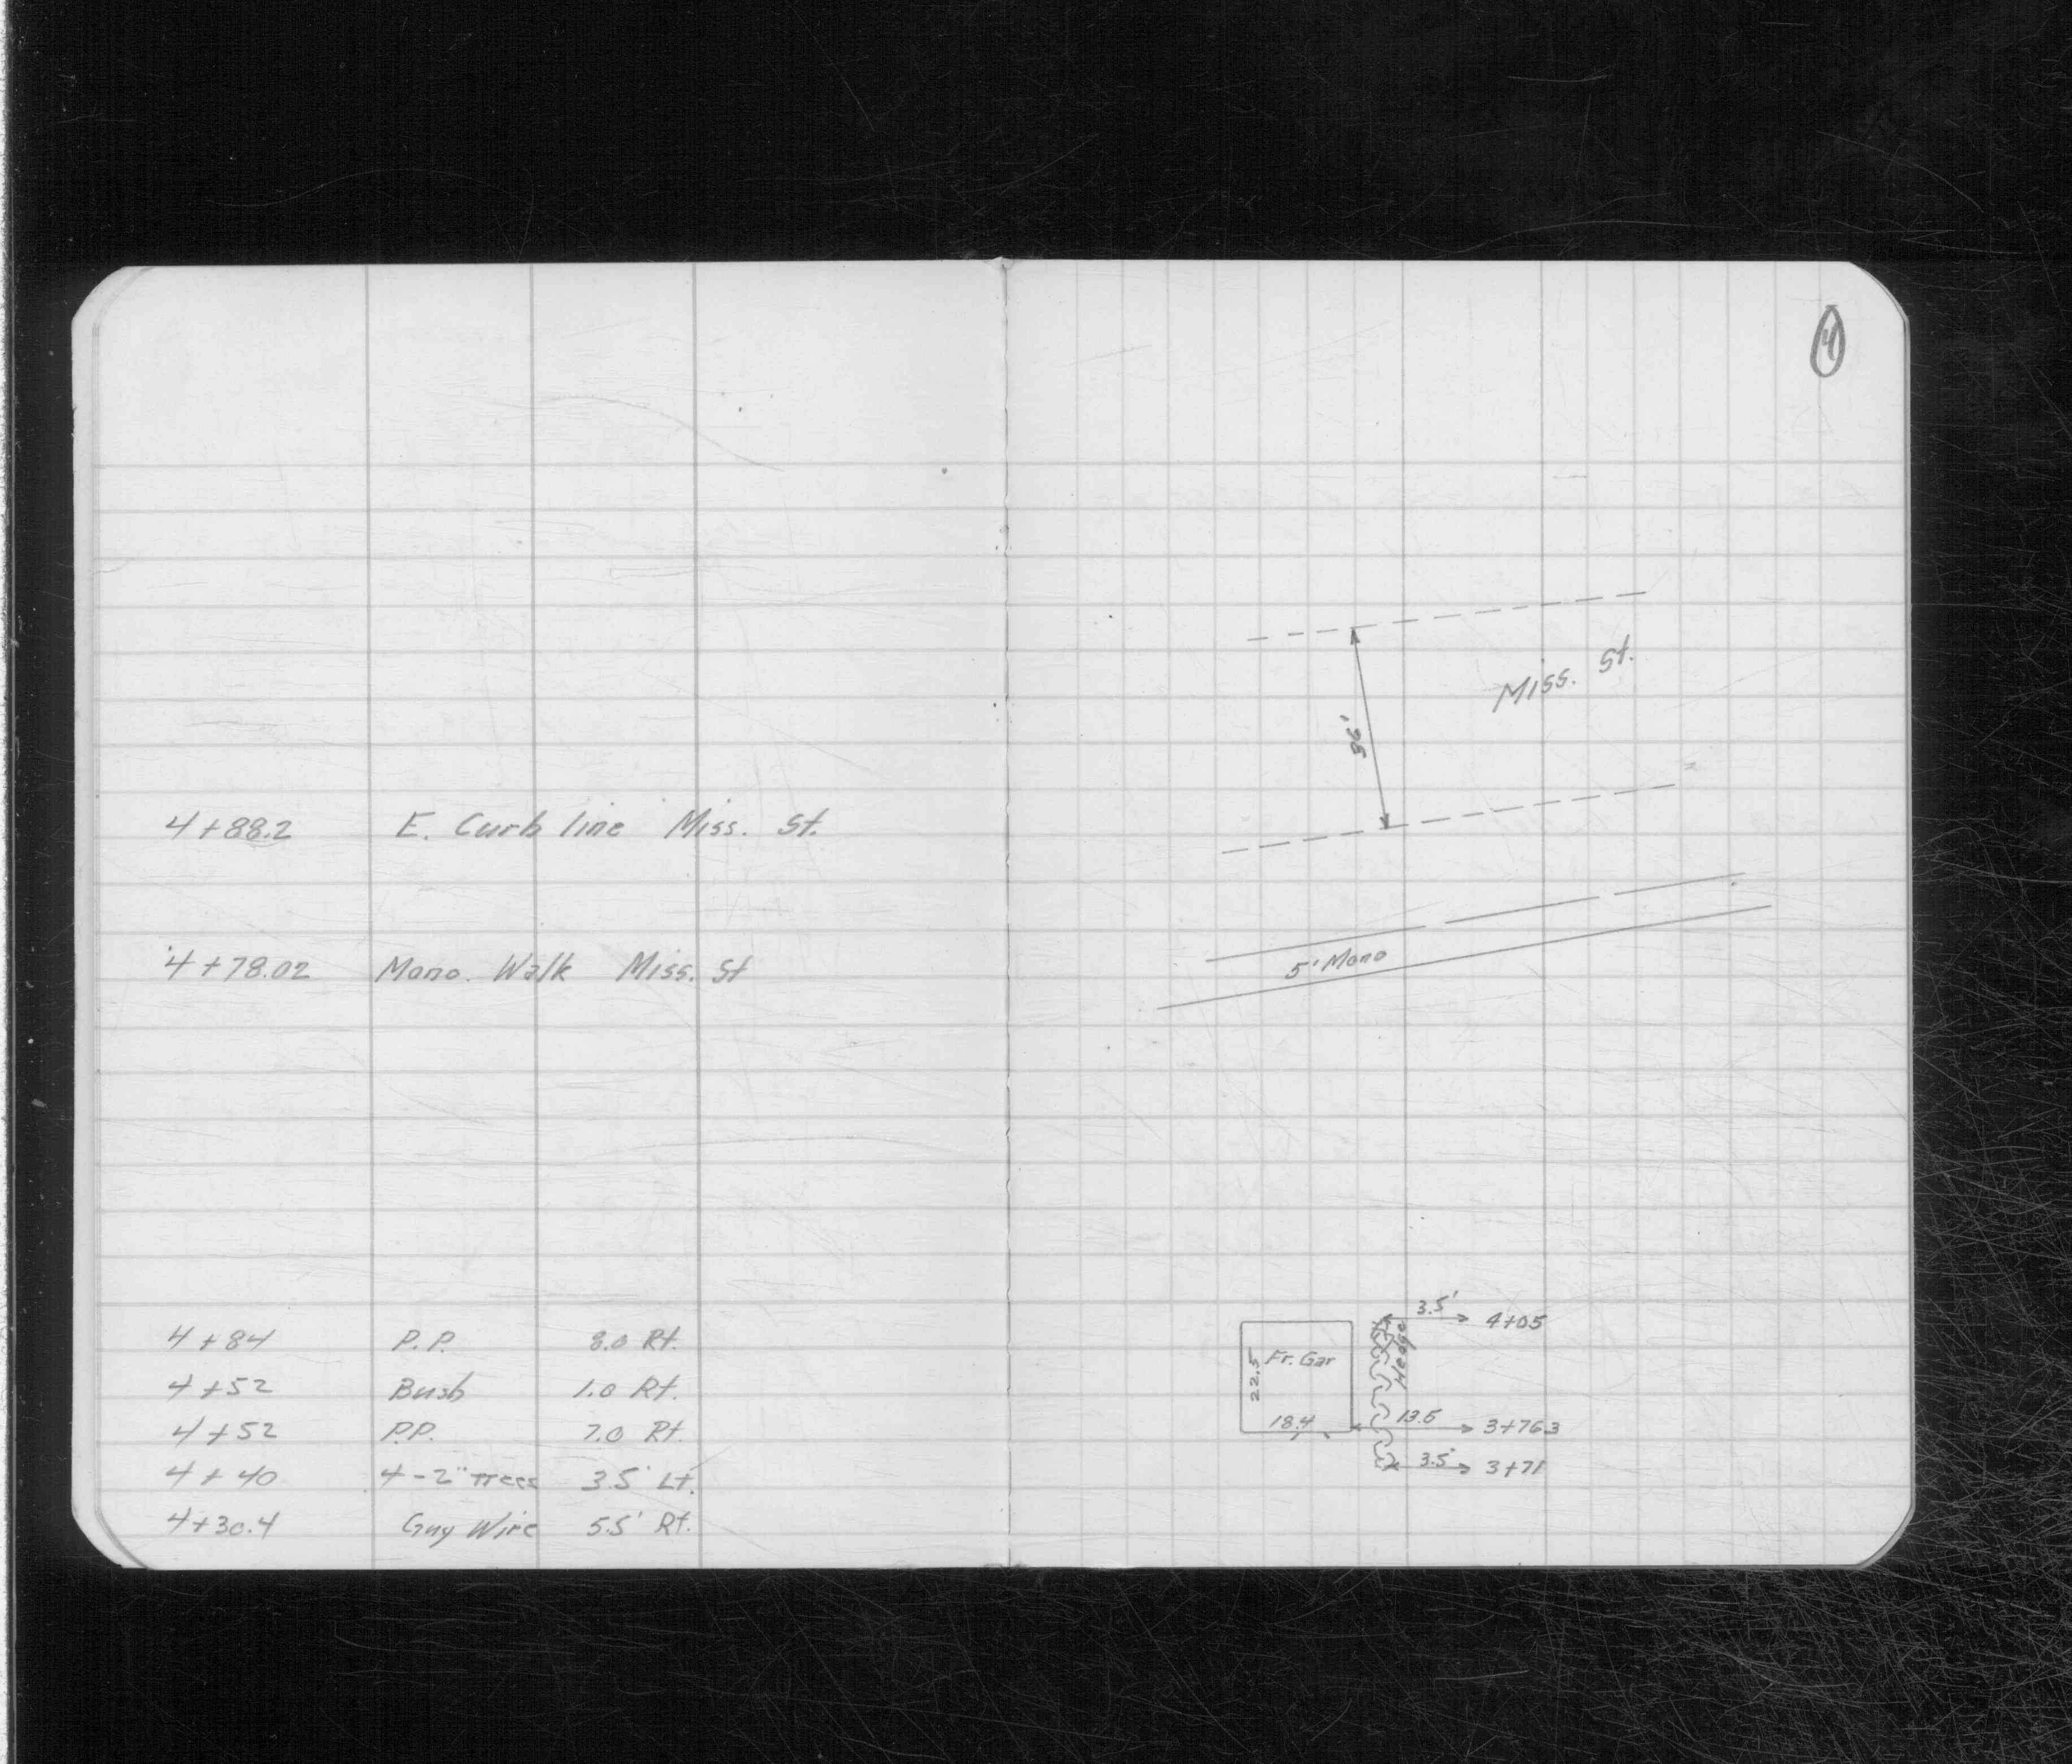 4+88.2 E. Curb line Miss. St.
4+78.02 Mono. Walk Miss. St
4+84 P.P. 8.0 Rt.
4+52 Bush 1.0 Rt.
4+52 P.P. 7.0 Rt.
4+40 4-2" Trees 3.5' Lt.
4+30.4 Guy Wire 5.5' Rt.
4
Miss. St.
36'
5' Mono
3.5' 4+05
Hedge
Fr. Gar
22.5
18.4
13.6 3+76.3
3.5' 3+71